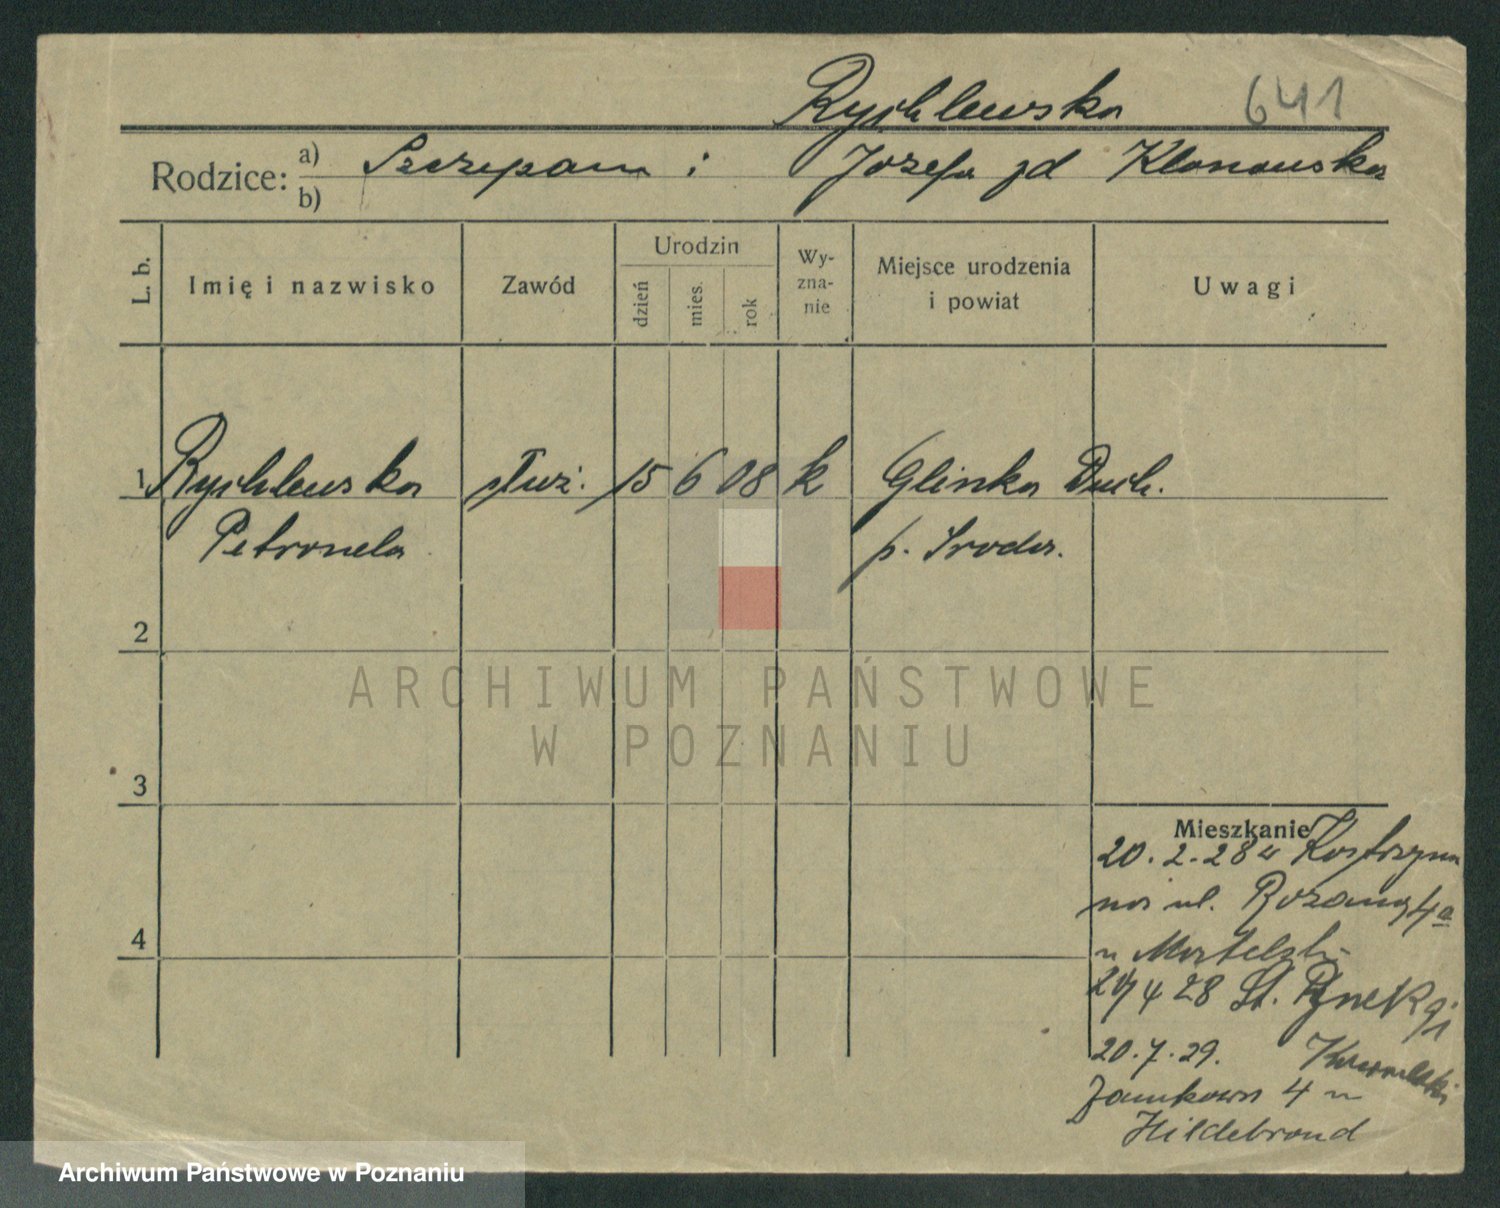 Rychlewska 641
Rodzice: a) Szczepan i Józefa zd Klonowska
b)
L. b.
Imię i nazwisko
Zawód
Urodzin
dzień
mies.
rok
Wy-
zna-
nie
Miejsce urodzenia
i powiat
Uwagi
1 Rychlewska służ. 15 6 08 k Glinka Duch.
Petronela p. Środa.
2
ARCHIWUM PAŃSTWOWE
W POZNANIU
3
Mieszkanie
20.2.28 z Kostrzyna
na ul. Różaną 4a
u
4
4 28 St. Rynek
20.7.29.
Zamkowa 4 u
Hildebrand
Archiwum Państwowe w Poznaniu